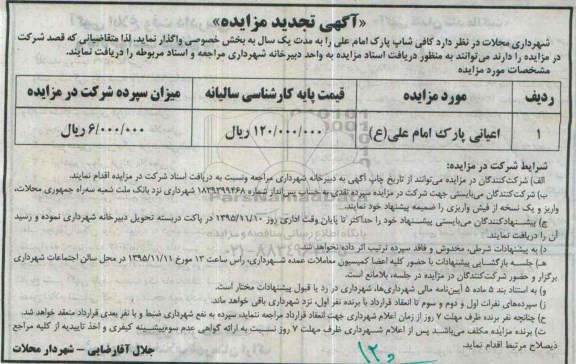 «آگهی تجدید مزایده»
شهرداری محلات در نظر دارد کافی شاپ پارک امام علی را به مدت یک سال به بخش خصوصی واگذار نماید. لذا متقاضیانی که قصد شرکت
در مزایده را دارند می‌توانند به منظور دریافت اسناد مزایده به واحد دبیرخانه شهرداری مراجعه و اسناد مربوطه را دریافت نمایند.
مشخصات مورد مزایده
ردیف مورد مزایده قیمت پایه کارشناسی سالیانه میزان سپرده شرکت در مزایده
۱ اعیانی پارک امام علی(ع) ۱۲۰/۰۰۰/۰۰۰ ریال ۶/۰۰۰/۰۰۰ ریال
شرایط شرکت در مزایده:
الف) شرکت‌کنندگان در مزایده می‌توانند از تاریخ چاپ آگهی به دبیرخانه شهرداری مراجعه ونسبت به دریافت اسناد شرکت در مزایده اقدام نمایند.
ب) شرکت‌کنندگان می‌بایستی جهت شرکت در مزایده سپرده نقدی به حساب پس‌انداز شماره ۱۸۳۹۳۹۹۴۶۸ شهرداری نزد بانک ملت شعبه سه‌راه جمهوری محلات،
واریز و یک نسخه از فیش واریزی را ضمیمه پیشنهاد خود نمایند.
ج) پیشنهاددهندگان می‌بایستی پیشنهاد خود را حداکثر تا پایان وقت اداری روز ۱۳۹۵/۱۱/۱۰ در پاکت دربسته تحویل دبیرخانه شهرداری نموده و رسید
آن را دریافت نمایند.
د) به پیشنهادات شرطی، مخدوش و فاقد سپرده ترتیب اثر داده نخواهد شد.
هـ) جلسه بازگشایی پیشنهادات با حضور کلیه اعضا کمیسیون معاملات عمده شهرداری، رأس ساعت ۱۳ مورخ ۱۳۹۵/۱۱/۱۱ در محل سالن اجتماعات شهرداری
برگزار و حضور شرکت‌کنندگان در مزایده در جلسه، بلامانع است.
و) به استناد بند ۵ ماده ۵ آیین‌نامه مالی شهرداری‌ها، شهرداری در رد یا قبول پیشنهادات مختار است.
ز) سپرده‌های نفرات اول و دوم و سوم تا انعقاد قرارداد با برنده نفر اول، نزد شهرداری باقی خواهد ماند.
ح) چنانچه نفر برنده ظرف مهلت ۷ روز از زمان اعلام شهرداری جهت انعقاد قرارداد مراجعه ننماید، سپرده به نفع شهرداری ضبط و با نفر بعدی قرارداد منعقد خواهد شد.
ت) برنده مزایده مکلف می‌باشد پس از اعلام شهرداری ظرف مهلت ۷ روز نسبت به ارائه گواهی عدم سوءپیشینه کیفری و اخذ تاییدیه از کلیه مراجع
ذیصلاح مرتبط اقدام نماید.
جلال آقارضایی - شهردار محلات